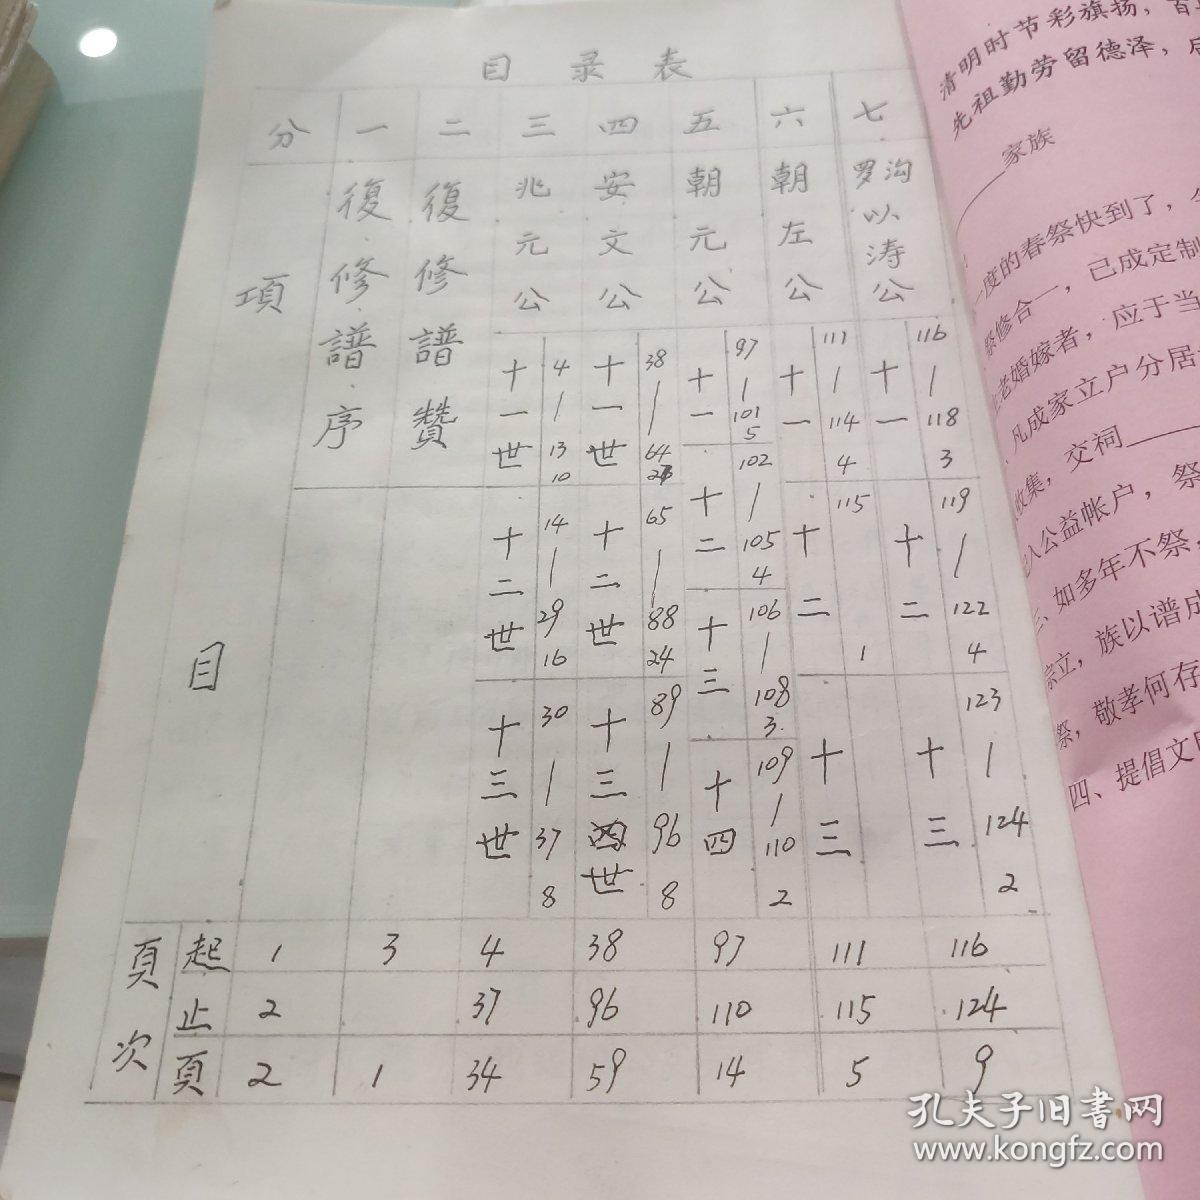 目录表
分 一 二 三 四 五 六 七
項目
復修譜序
復修譜贊
兆元公
安文公
朝元公
朝左公
罗沟以涛公
十一世 4 | 13 10
十二世 14 | 29 16
十三世 30 | 37 8
十一世 38 | 64
十二世 65 | 88 24
十三四世 89 | 96 8
十一 97 | 101 5
十二 102 | 105 4
十三 106 | 108 3
十四 109 | 110 2
十一 111 | 114 4
十二 115 1
十三
十一 116 | 118 3
十二 119 | 122 4
十三 123 | 124 2
頁次
起 1 3 4 38 97 111 116
止 2 37 96 110 115 124
頁 2 1 34 59 14 5 9
清明时节彩旗扬，百
先祖勤劳留德泽，
家族
一度的春祭快到了，
祭修合一，已成定制
老婚嫁者，应于当
凡成家立户分居
收集，交祠
入公益帐户，祭
三、如多年不祭，
宗立，族以谱成
祭，敬孝何存
四、提倡文
孔夫子旧书网
www.kongfz.com